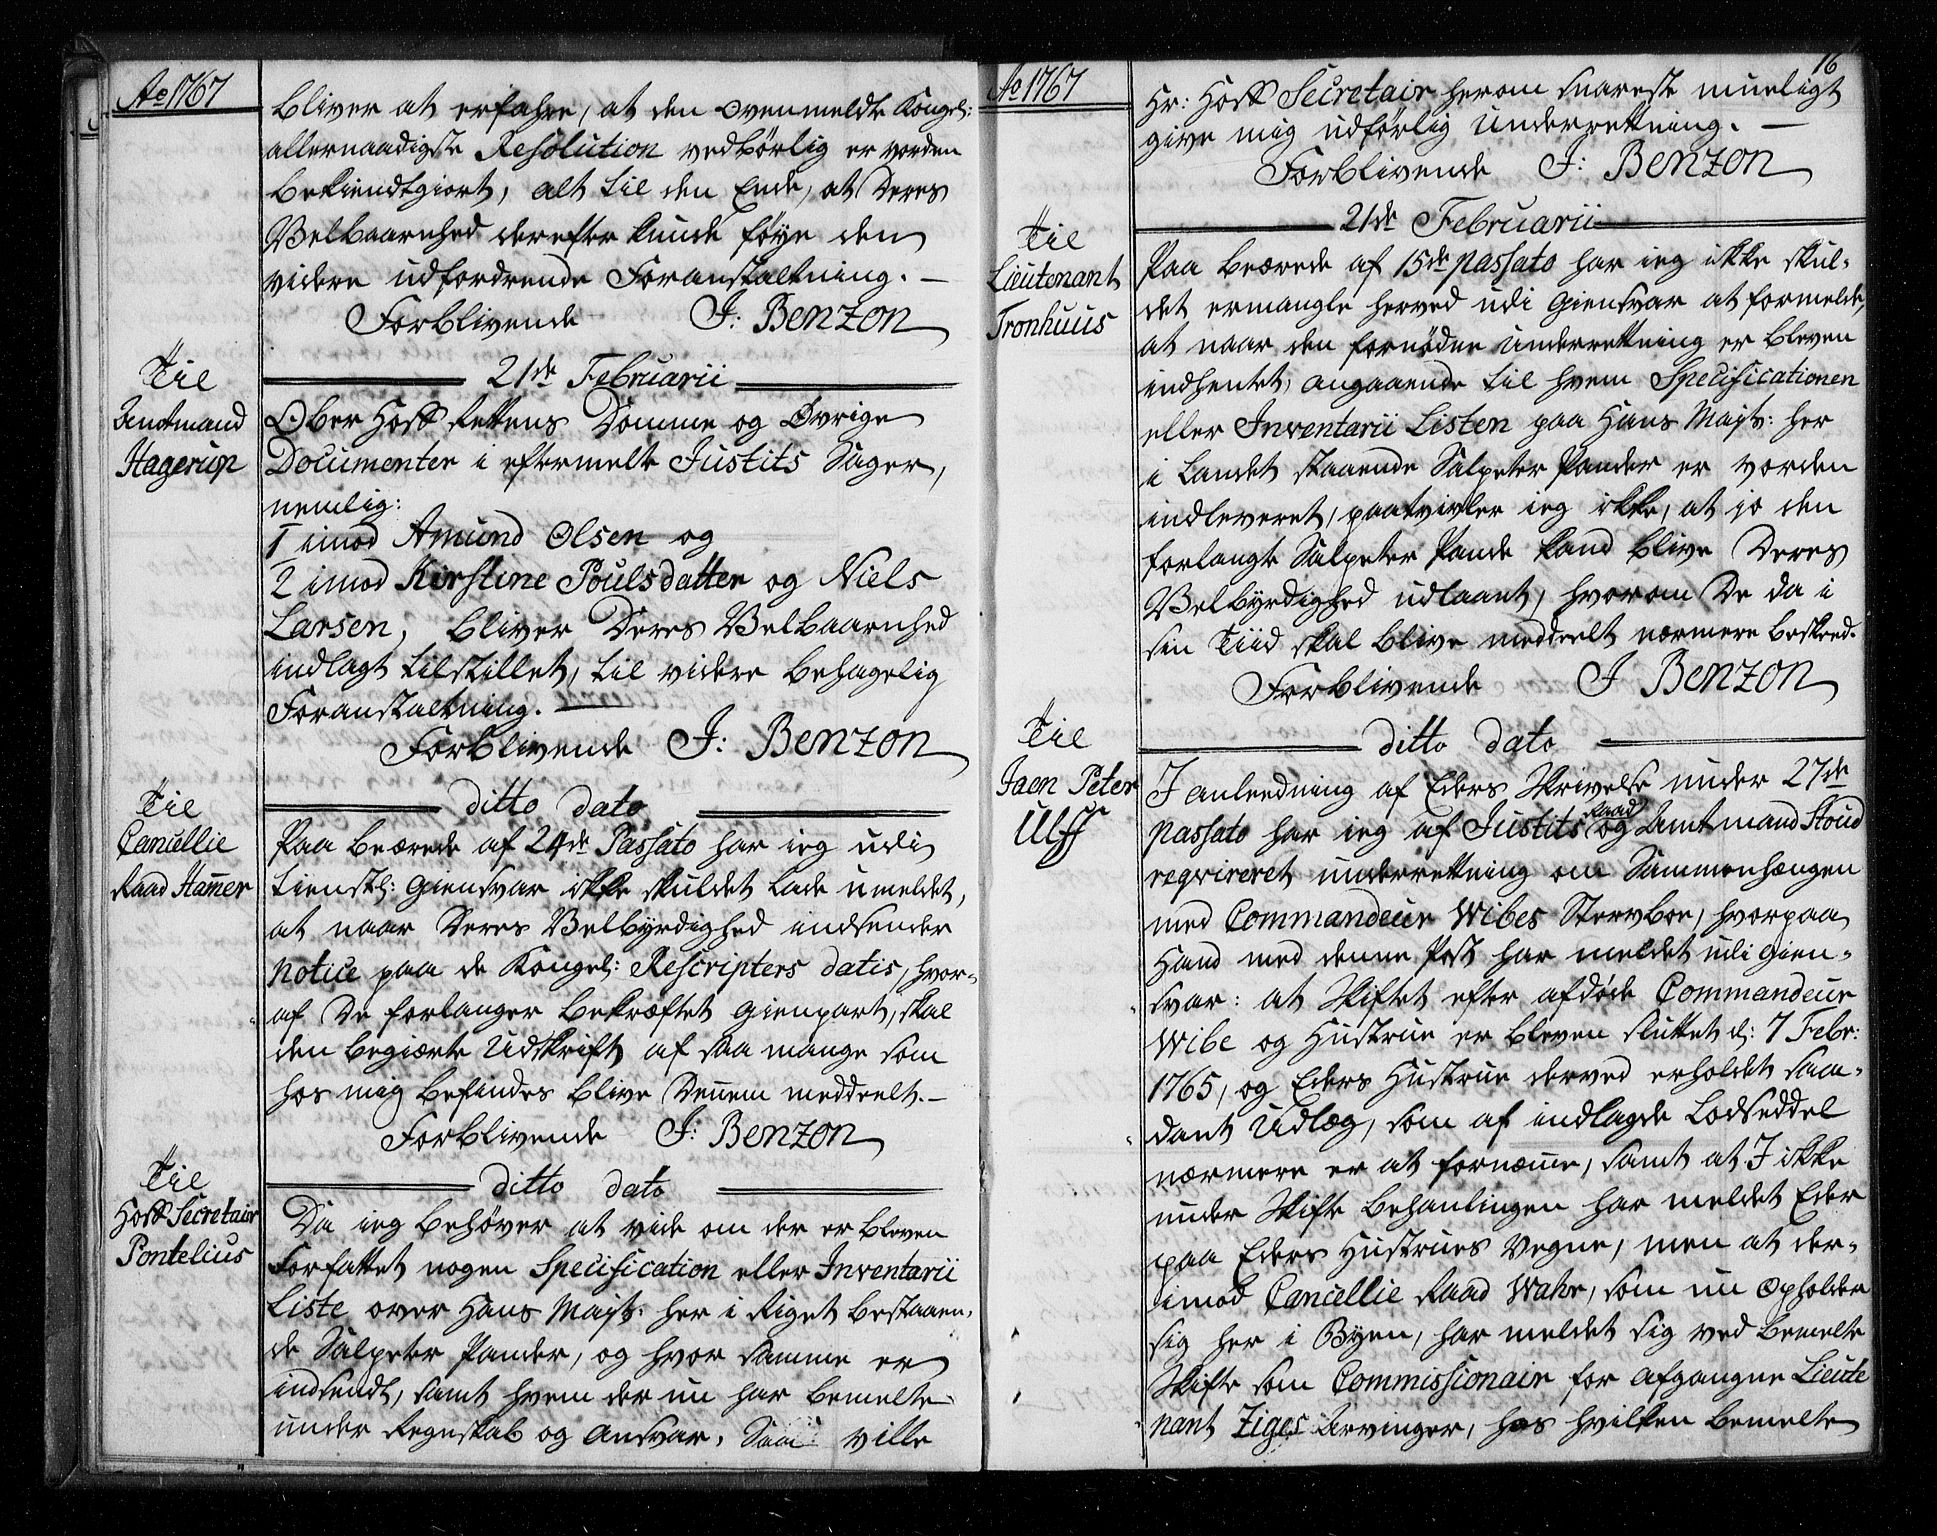 Ao 1767
bliver at erfahre, at den ovenmeldte Kongel:
allernaadigste Resolution vedbørlig er vorden
bekiendtgiort, alt til den Ende, at Deres
Velbaarnhed derefter kunde føye den
videre udfordrende Foranstaltning. —
Forblivende J: Benzon
21de Februarii
Til
Amtmand
Hagerup
Ober Hoff Rettens Domme og Øvrige
Documenter i eftermelte Justits Sager,
nemlig:
1 imod Amund Olsen og
2 imod Kirstine Poulsdatter og Niels
Larsen, bliver Deres Velbaarnhed
indlagt tilstillet, til videre behagelig
Foranstaltning. —
Forblivende J: Benzon
ditto dato
Til
Cancellie
Raad Hamer
Paa beærede af 24de Passato har ieg udi
tienstl: giensvar ikke skuldet lade umeldet,
at naar Deres Velbyrdighed indsender
notice paa de Kongel: Rescripters datis, hvor-
af De forlanger bekræftet gienpart, skal
den begiærte Udskrift af saa mange som
hos mig befindes blive Dennem meddeelt. —
Forblivende J: Benzon
ditto dato
Til
Hoff Secretair
Pontelius
Da ieg behøver at vide om der er bleven
Forfattet nogen Specification eller Inventarii
Liste over Hans Majts: her i Riget bestaaen-
de Salpeter Pander, og hvor samme er
indsendt, samt hvem der nu har bemelte
under Regnskab og Ansvar, Saa ville
16
Ao 1767
Hr: Hoff Secretair herom snareste mueligt
give mig udførlig Underrettning. —
Forblivende J: Benzon
21de Februarii
Til
Lieutenant
Tronhuus
Paa beærede af 15de passato har ieg ikke skul-
det ermangle herved udi giensvar at formelde,
at naar den fornødne underrettning er bleven
indhentet, angaaende til hvem Specificationen
eller Inventarii Listen paa Hans Majts: her
i Landet staaende Salpeter Pander er vorden
indleveret, paatvivler ieg ikke, at jo den
forlangte Salpeter Pande kand blive Deres
Velbyrdighed udlaant, hvorom De da i
sin Tiid skal blive meddeelt nærmere beskeed.
Forblivende J Benzon
ditto dato
Til
Jaen Peter
Ulff
I anleedning af Eders Skrivelse under 27de
passato har ieg af Justits Raad og Amtmand Stoud
reqvireret underrettning om Sammenhængen
med Commandeur Wibes Sterfboe, hvorpaa
Hand med denne Post har meldet udi gien-
svar: at Skiftet efter afdøde Commandeur
Wibe og Hustrue er bleven sluttet d: 7 Febr:
1765, og Eders Hustrue derved erholdet saa-
dant Udlæg, som af indlagde Lodseddel
nærmere er at fornæmme, samt at I ikke
under Skifte behanlingen har meldet Eder
paa Eders Hustrues Vegne, men at der-
imod Cancellie Raad Wahr, som nu opholder
sig her i Byen, har meldet sig ved bemelte
Skifte som Commissionair for afgangne Lieute
nant Ziges Arvinger, hos hvilken bemelte